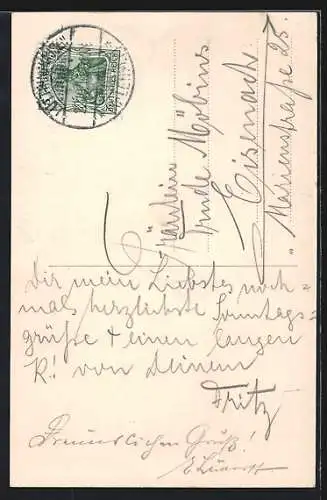 Fräulein
Trude Möbius
Eisenach
Marienstraße 25.
Dir mein Liebstes noch=
mals herzlichste Sonntags=
grüße + einen langen
K! von Deinem
Fritz
Freundlichen Gruß!